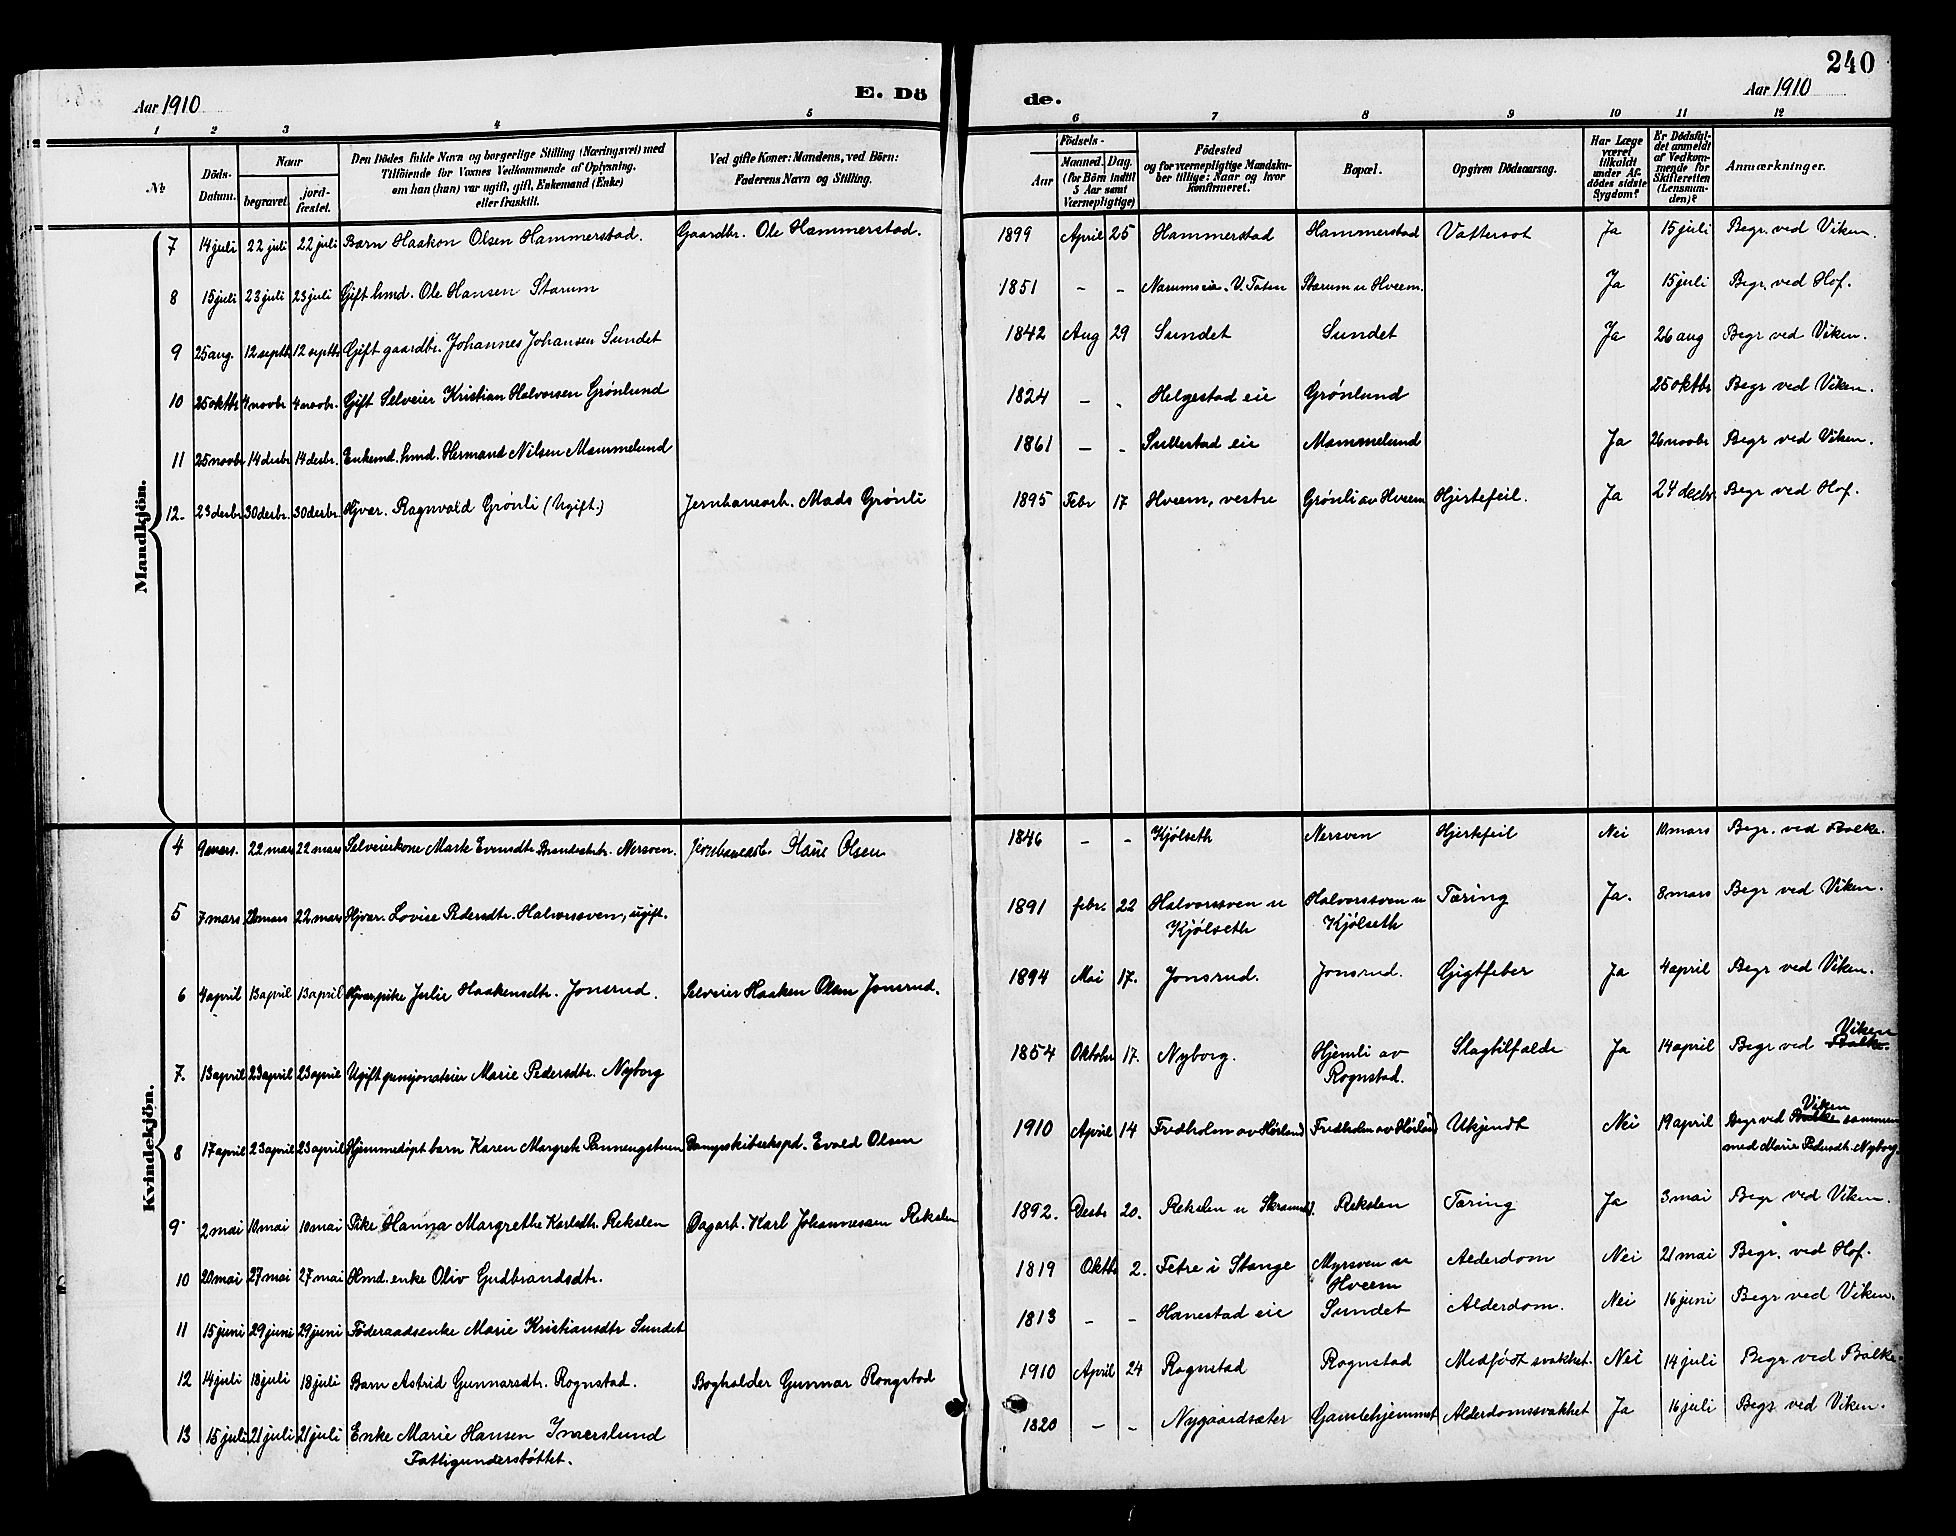 240
Aar 1910 E. Dö de. Aar 1910
1 2 3 4 5 6 7 8 9 10 11 12
№
Döds-Datum.
Naar
begravet.
jord-fæstet.
Den Dödes fulde Navn og borgerlige Stilling (Næringsvei) med
Tilföiende for Voxnes Vedkommende af Oplysning,
om han (hun) var ugift, gift, Enkemand (Enke)
eller fraskilt.
Ved gifte Koner: Mandens, ved Börn:
Faderens Navn og Stilling.
Födsels-
Aar
Maaned. Dag.
(for Börn indtil
5 Aar samt
Værnepligtige)
Födested
og for værnepligtige Mandsku-
ber tillige: Naar og hvor
Konfirmeret.
Bopæl.
Opgiven Dödsaarsag.
Har Læge
været
tilkaldt
under Af-
dödes sidste
Sygdom?
Er Dödsfal-
det anmeldt
af Vedkom-
mende for
Skifteretten
(Lensman-
den)?
Anmærkninger.
Mandkjön.
7 14 juli 22 juli 22 juli Barn Haakon Olsen Hammerstad. Gaardbr. Ole Hammerstad. 1899 April 25 Hammerstad Hammerstad Vattersot Ja 15 juli Begr. ved Viken.
8 15 juli 23 juli 23 juli Gift hmd. Ole Hansen Starum 1851 - - Narumseie. V. Toten Starum u Hveem. Ja 15 juli Begr. ved Hof.
9 25 aug. 12 septb 12 septb Gift gaardbr. Johannes Johansen Sundet 1842 Aug 29 Sundet Sundet Ja 26 aug Begr ved Viken.
10 25 oktbr 4 novbr 4 novbr. Gift Selveier Kristian Halvorsen Grønlund 1824 - - Helgestad eie Grønlund 25 oktbr Begr ved Viken.
11 25 novbr 14 desbr 14 desbr. Enkemd. hmd. Hermand Nilsen Mammelund 1861 - - Sullestad eie Mammelund Ja 26 novbr Begr ved Viken.
12. 23 desbr 30 desbr. 30 desbr. Hjvær. Ragnvald Grønli (Ugift.) Jernbanearb. Mads Grønli 1895 Febr 17 Hveem, vestre Grønli av Hveem Hjertefeil. Ja 24 decbr. Begr ved Hof.
Kvindekjön.
4 9 mars. 22 mars 22 mars Selveierkone Marte Evensdtr Brandsæter. Nersven. Jernbanearb. Olsen 1846 - - Kjølseth Nersven Hjertefeil Nei 10 mars Begr. ved Balke.
5 7 mars 22 mars 22 mars Hjvær. Lovise Pedersdtr. Halvorssven, ugift. 1891 febr. 22 Halvorssven u Halvorssven u Tæring Ja. 8 mars Begr ved Viken.
Kjølseth Kjølseth
6 4 april 13 april 13 april Hjvær. pike Julie Haakensdtr. Jonsrud. Selveier Haaken Olsen Jonsrud. 1894 Mai 17. Jonsrud. Jonsrud. Gigtfeber Ja 4 april Begr ved Viken.
7. 13 april 23 april 23 april Ugift pensjonatrier Marie Pedersdtr. Nyborg 1854 Oktobr 17. Nyborg. Hjemli av Slagtilfælde Ja 14 april Begr ved Balke. Viken
Rognstad.
8 17 april 23 april 23 april Hjemmedøpt barn Karen Margrete Pannengstuen Dampskibseksped. Evald Olsen 1910 April 14 Fredholm av Hørland Fredholm av Hørland Ukjendt Nei 19 april Begr ved Balke Viken sammen
med Marie Pedersdtr. Nyborg.
9 2 mai 10 mai 10 mai Pike Hanna Margrethe Karlsdtr. Rekslen Dagarb. Karl Johannessen Rekslen 1892. Desbr 20. Rekslen u Skramst. Rekslen Tæring Ja 3 mai Begr ved Viken.
10 20 mai 27 mai 27 mai Hmd. enke Oliv Gudbrandsdtr. 1819 Oktb 2. Fetre i Stange Myrsven u Alderdom Nei 21 mai Begr. ved Hof.
Hveem
11 15 juni 29 juni 29 juni Föderaadsenke Marie Kristiansdtr Sundet 1813 - - Hanestad eie Sundet Alderdom. Nei 16 juni Begr ved Viken.
12 14 juli 18 juli 18 juli Barn Astrid Gunnarsdtr. Rognstad. Bogholder Gunnar Rongstad 1910 April 24 Rognstad Rognstad Medfødt svakhet. Nei 14 juli Begr ved Balke.
13 15 juli 21 juli 21 juli Enke Marie Hansen Imerslund 1820 - - Nygaardsæter Gamlehjemmet Alderdomssvakhet Ja 16 juli Begr ved Viken.
Fattigunderstøttet.